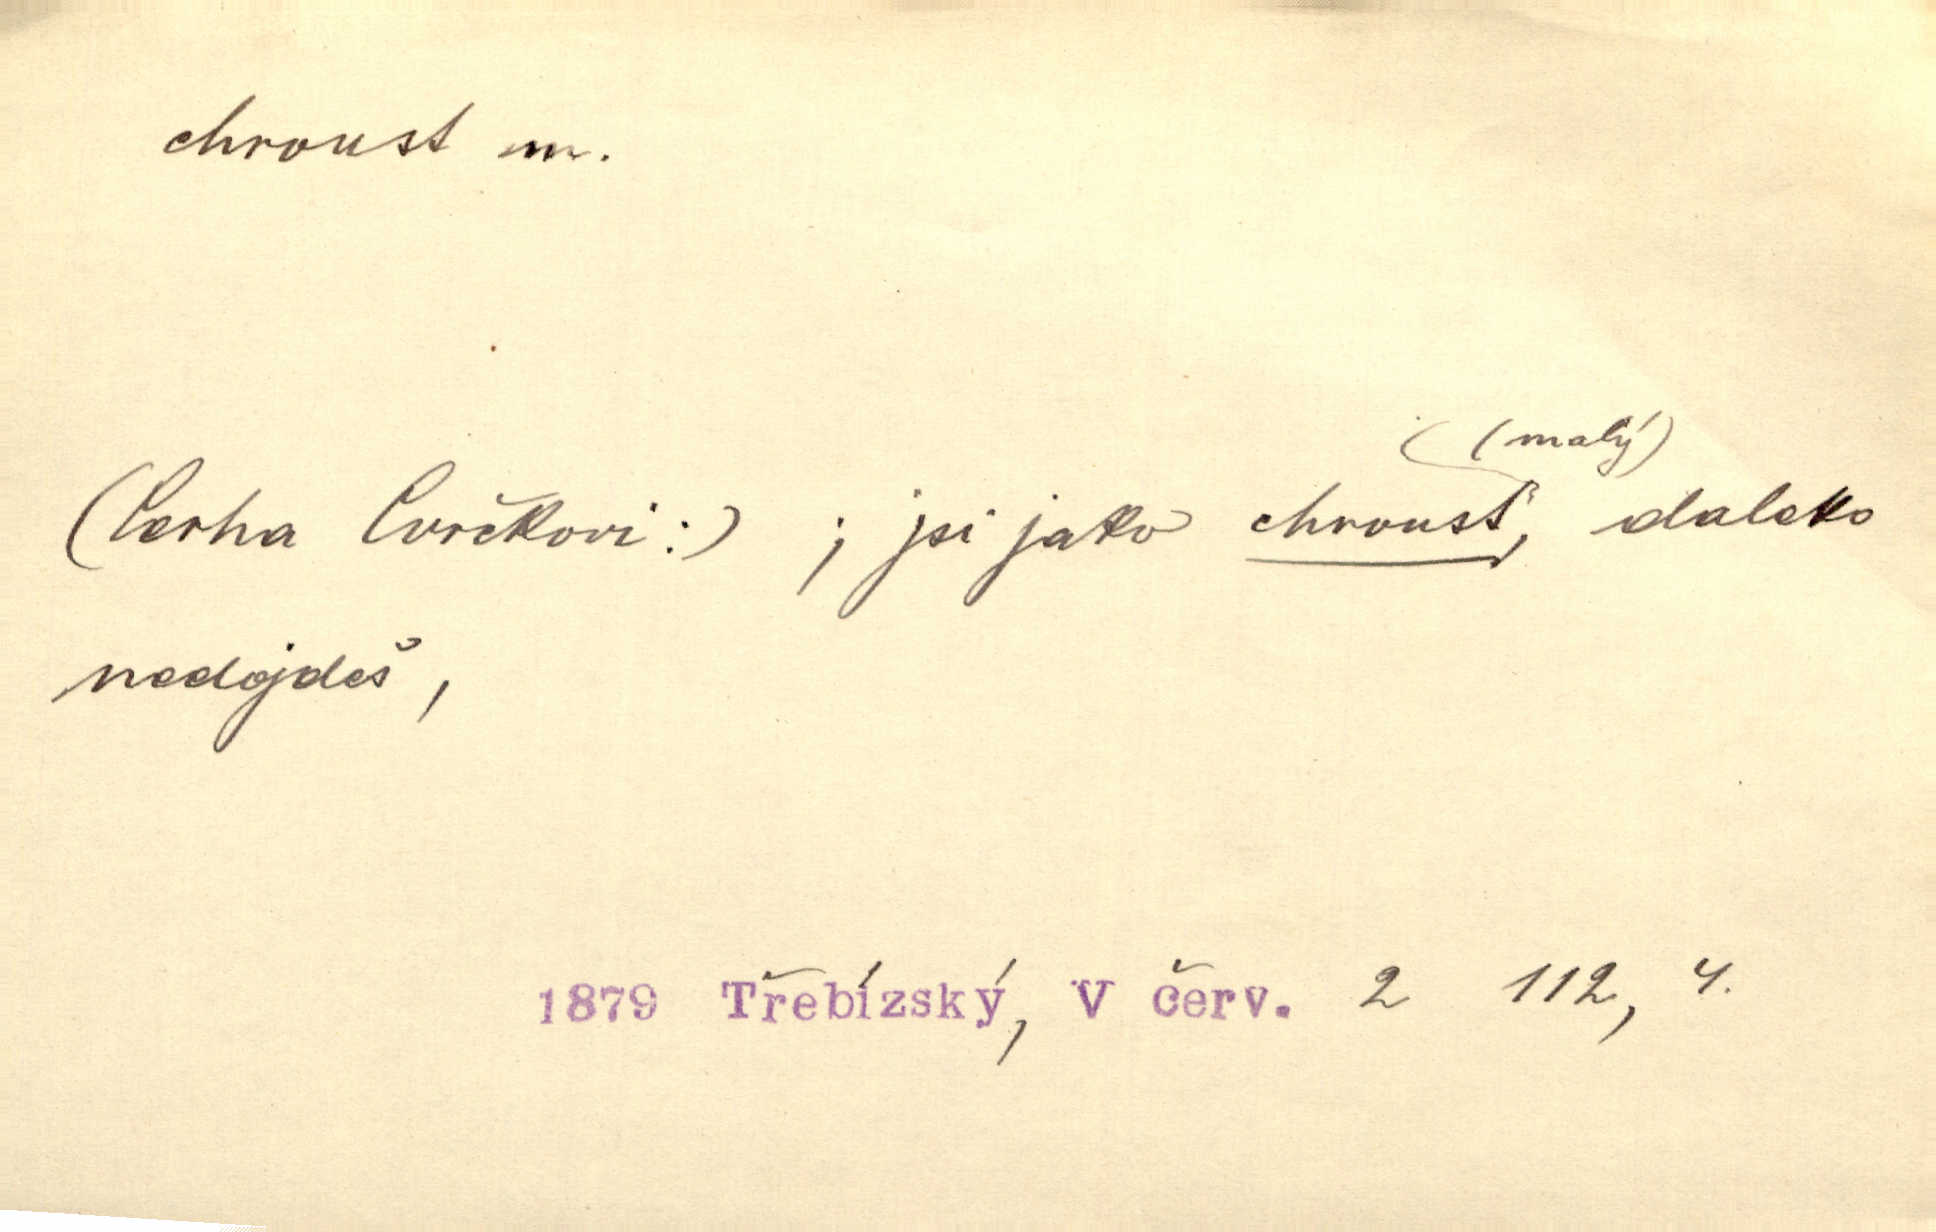 chroust m.
(malý)
(Čerha Cvrčkovi:) ; jsi jako chroust, daleko
nedojdeš,
1879 Třebízský, V červ. 2 112, 4.